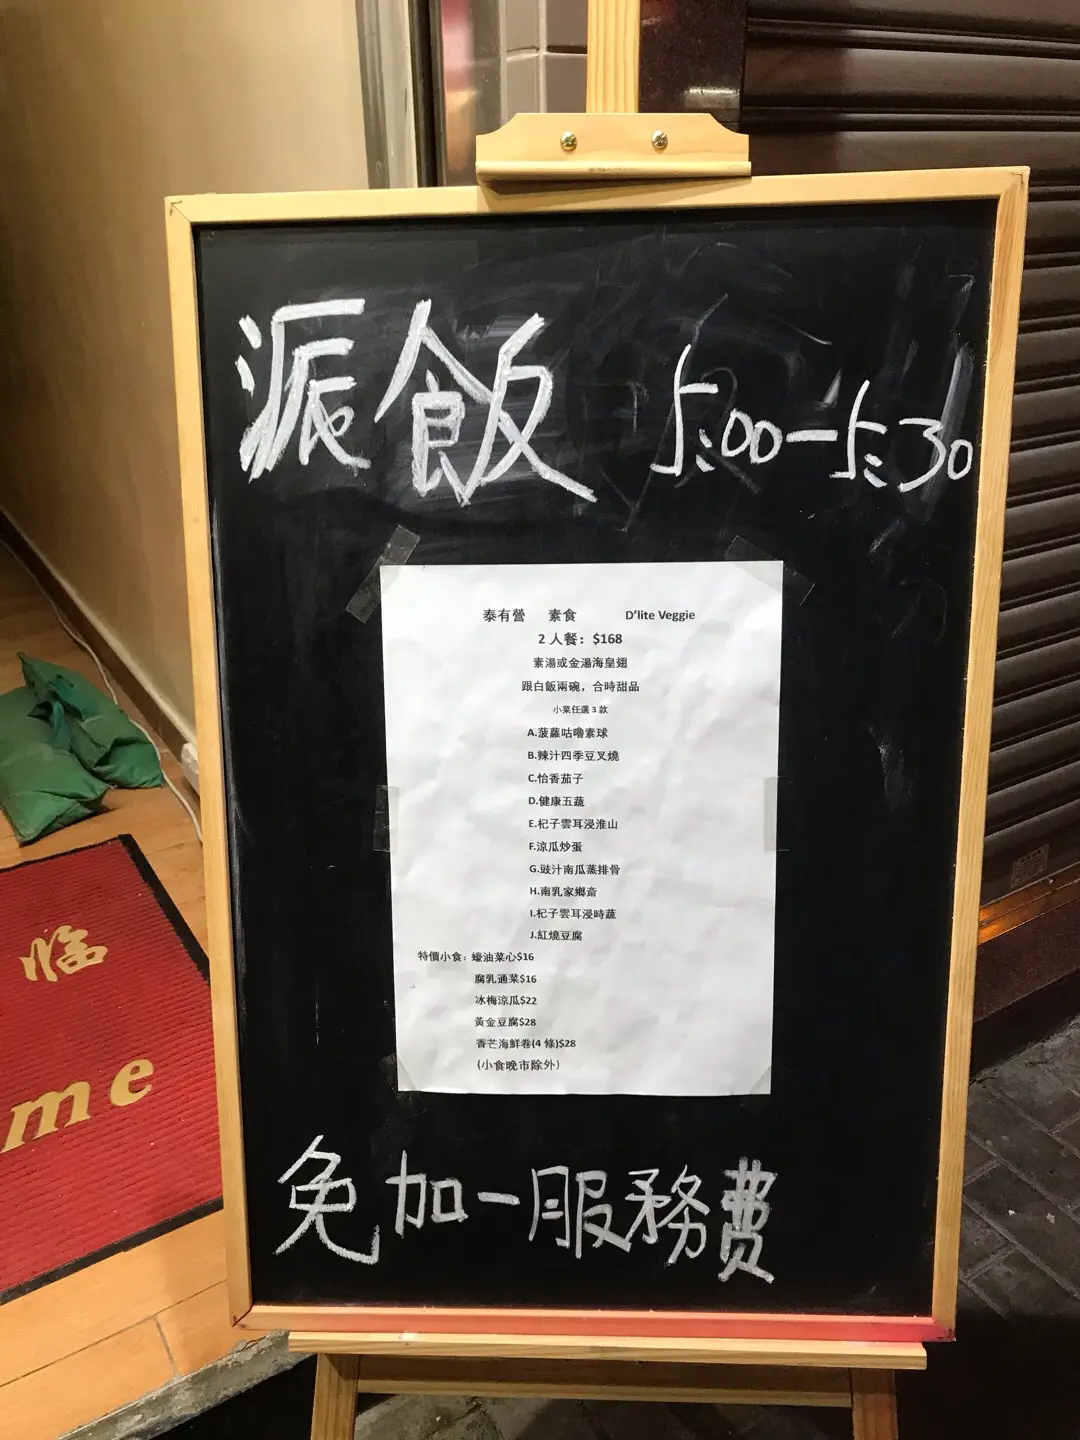 派飯 5:00-5:30
泰有營 素食 D'lite Veggie
2 人餐：$168
素湯或金湯海皇翅
跟白飯兩碗，合時甜品
小菜任選 3 款
A.菠蘿咕嚕素球
B.辣汁四季豆叉燒
C.怡香茄子
D.健康五蔬
E.杞子雲耳浸淮山
F.涼瓜炒蛋
G.豉汁南瓜蒸排骨
H.南乳家鄉齋
I.杞子雲耳浸時蔬
J.紅燒豆腐
特價小食：蠔油菜心$16
腐乳通菜$16
冰梅涼瓜$22
黃金豆腐$28
香芒海鮮卷(4 條)$28
(小食晚市除外)
免加一服務費
臨
me